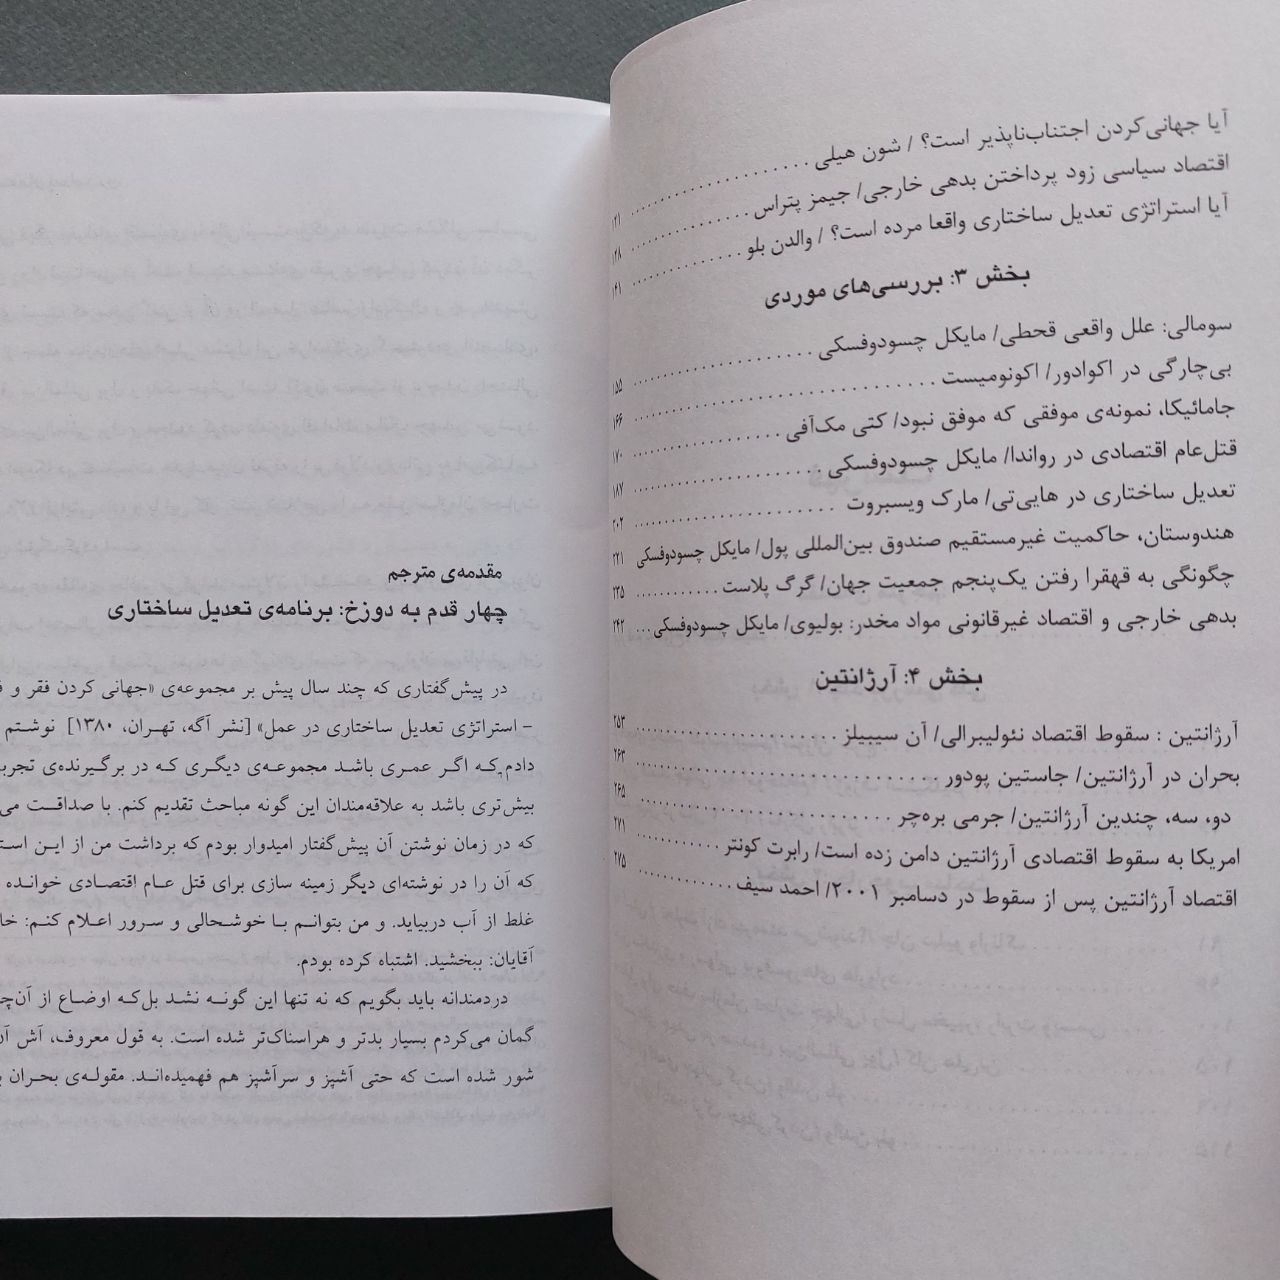 آیا جهانی‌کردن اجتناب‌ناپذیر است؟ / شون هیلی .................... ۱۲۱
اقتصاد سیاسی زود پرداختن بدهی خارجی/ جیمز پتراس ............. ۱۲۸
آیا استراتژی تعدیل ساختاری واقعا مرده است؟ / والدن بلو ............. ۱۴۱
بخش ۳: بررسی‌های موردی
سومالی: علل واقعی قحطی/ مایکل چسودوفسکی .................... ۱۵۵
بی‌چارگی در اکوادور/ اکونومیست .......................... ۱۶۶
جامائیکا، نمونه‌ی موفقی که موفق نبود/ کتی مک‌آفی ............... ۱۷۰
قتل‌عام اقتصادی در رواندا/ مایکل چسودوفسکی .................. ۱۸۷
تعدیل ساختاری در هایی‌تی/ مارک ویسبروت .................. ۲۰۲
هندوستان، حاکمیت غیرمستقیم صندوق بین‌المللی پول/ مایکل چسودوفسکی ۲۲۱
چگونگی به قهقرا رفتن یک‌پنجم جمعیت جهان/ گرگ پلاست ............ ۲۳۵
بدهی خارجی و اقتصاد غیرقانونی مواد مخدر: بولیوی/ مایکل چسودوفسکی ... ۲۴۲
بخش ۴: آرژانتین
آرژانتین : سقوط اقتصاد نئولیبرالی/ آن سیبیلز .................... ۲۵۳
بحران در آرژانتین/ جاستین پودور .............................. ۲۶۳
دو، سه، چندین آرژانتین/ جرمی بره‌چر .......................... ۲۶۵
امریکا به سقوط اقتصادی آرژانتین دامن زده است/ رابرت کونتر .......... ۲۷۱
اقتصاد آرژانتین پس از سقوط در دسامبر ۲۰۰۱/ احمد سیف ............ ۲۷۵
مقدمه‌ی مترجم
چهار قدم به دوزخ: برنامه‌ی تعدیل ساختاری
در پیش‌گفتاری که چند سال پیش بر مجموعه‌ی «جهانی کردن فقر و
– استراتژی تعدیل ساختاری در عمل» [نشر آگه، تهران، ۱۳۸۰] نوشتم
دادم که اگر عمری باشد مجموعه‌ی دیگری که در برگیرنده‌ی
بیش‌تری باشد به علاقه‌مندان این گونه مباحث تقدیم کنم. با صداقت
که در زمان نوشتن آن پیش‌گفتار امیدوار بودم که برداشت من از این
که آن را در نوشته‌ای دیگر زمینه سازی برای قتل عام اقتصادی خوانده
غلط از آب دربیاید. و من بتوانم با خوشحالی و سرور اعلام کنم:
آقایان: ببخشید. اشتباه کرده بودم.
دردمندانه باید بگویم که نه تنها این گونه نشد بل‌که اوضاع از
گمان می‌کردم بسیار بدتر و هراسناک‌تر شده است. به قول معروف، آش
شور شده است که حتی آشپز و سرآشپز هم فهمیده‌اند. مقوله‌ی بحران